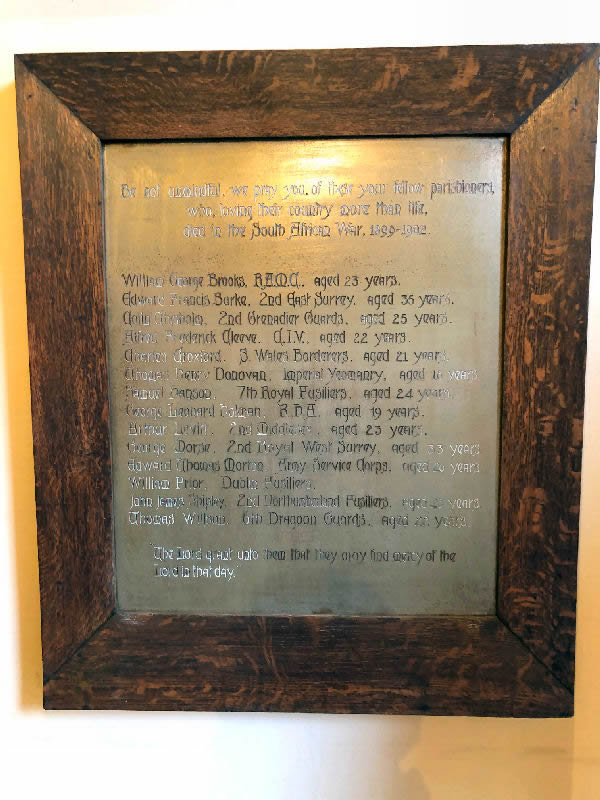 Be not unmindful, we pray you, of these your fellow parishioners,
who, loving their country more than life,
died in the South African War, 1899-1902.
William George Brooks, R.A.M.C., aged 23 years.
Edward Francis Burke, 2nd East Surrey, aged 36 years.
Colin Chisholm, 2nd Grenadier Guards, aged 25 years.
Alfred Frederick Cleeve, C.I.V., aged 22 years.
Charles Croxford, 3 Wales Borderers, aged 21 years.
Thomas Henry Donovan, Imperial Yeomanry, aged years.
Samuel Hanson, 7th Royal Fusiliers, aged 24 years.
George Leonard R.H.A. aged 19 years.
Arthur 2nd Middlesex, aged 23 years.
George Morse, 2nd Royal West Surrey, aged 33 years
Edward Thomas Army Service Corps, aged years
William Prior, Dublin Fusiliers.
John James Shipley, 2nd Northumberland Fusiliers, aged years
Thomas 6th Dragoon Guards, aged years.
"The Lord grant unto them that they may find mercy of the
Lord in that day."